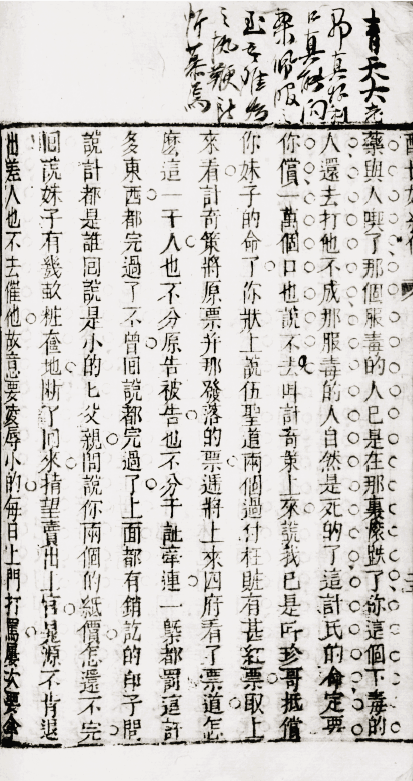 青天大老
真好
口真能问
案佩服
之執鞭所
忻慕焉
藥與人喫了那個服毒的人已是在那裏滾跌了你這個下毒的
人還去打他不成那服毒的人自然是死的了這計氏的命定要
你償一萬個口也說不去呌計奇策上來說我已是呌珍哥抵償
你妹子的命了你狀上說伍聖道兩個過付枉賍有甚紅票取上
來看計奇策將原票并那發落的票遞將上來四府看了票道怎
麽這一干人也不分原告被告也不分干証牽連一槩都罰這許
多東西都完過了不曾囬說都完過了上面都有銷訖的印子問
說計都是誰囬說是小的匕父親問說你兩個的紙價怎還不完
囬說妹子有幾畝粧奩地斷了囬來指望賣出上官晁源不肯退
出差人也不去催他故意要凌辱小的每日上門打罵屢次要拿